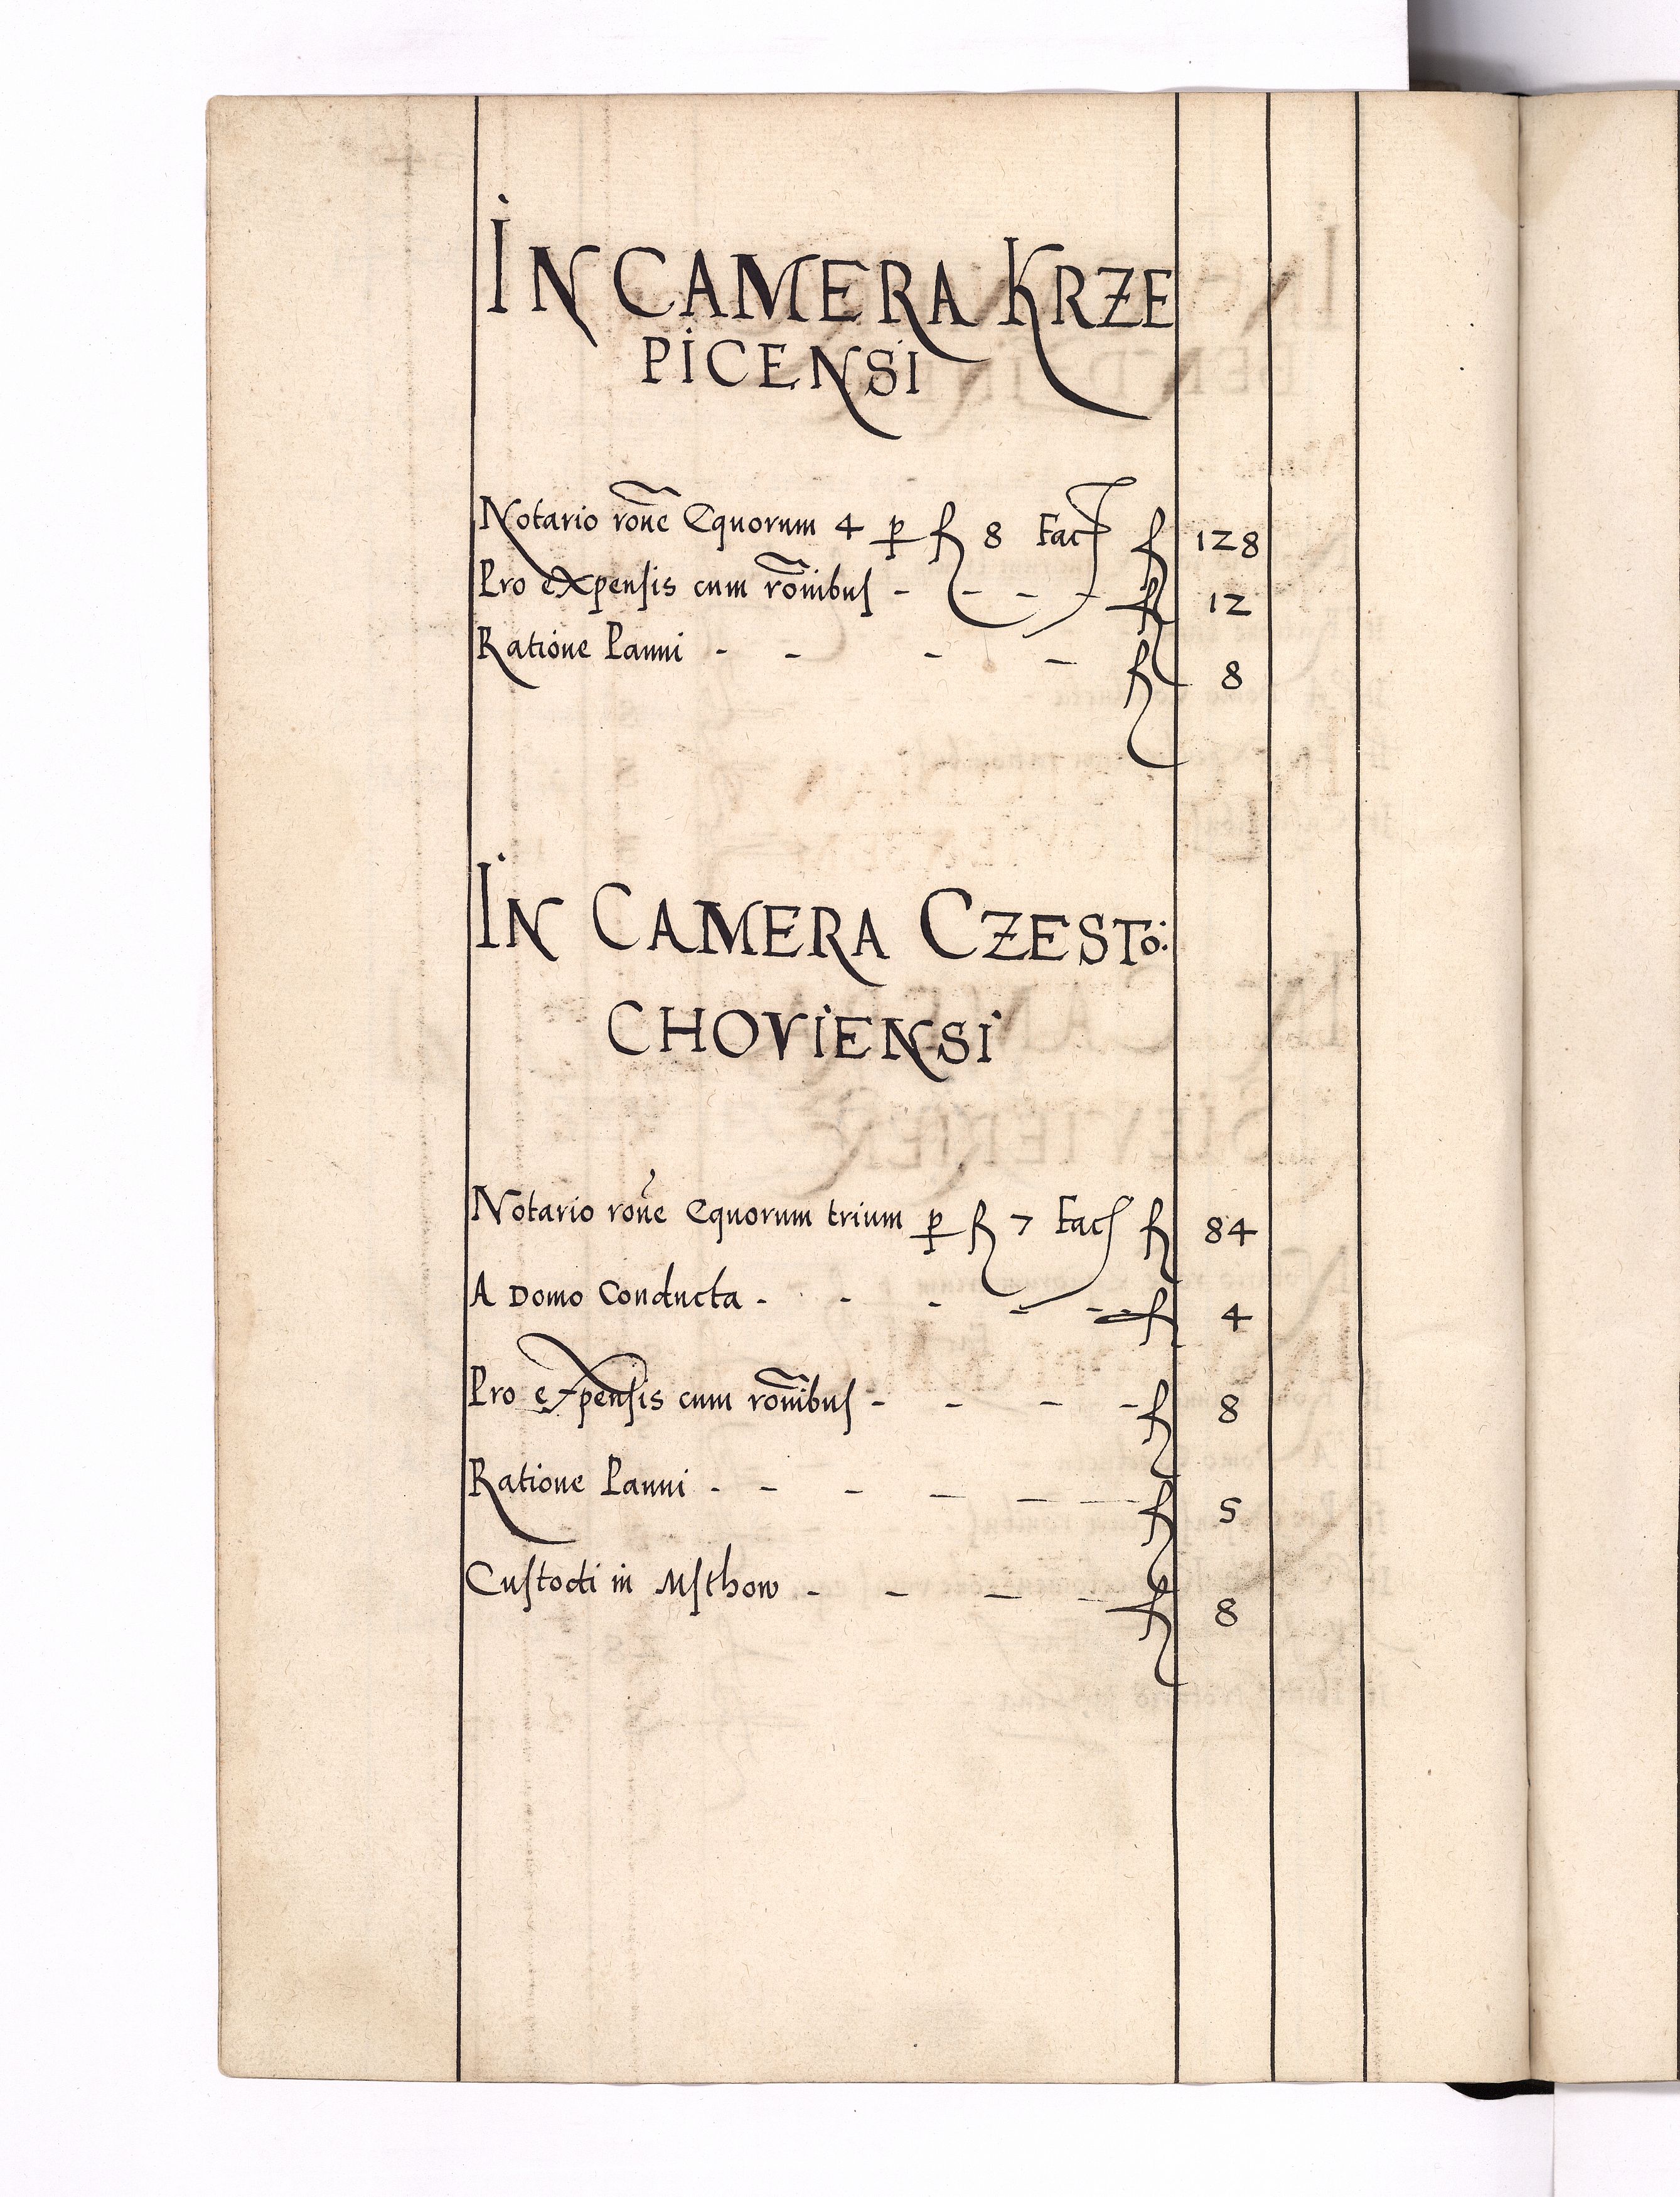 IN CAMERA KRZE
PICENSI
Notario rone Equorum 4 p fl 8 Fac fl 128
Pro expensis cum ronibus - - - - fl 12
Ratione Panni - - - - fl 8
IN CAMERA CZESTO:
CHOVIENSI
Notario rone Equorum trium p fl 7 Fac fl 84
A Domo Conducta - - - - - fl 4
Pro expensis cum ronibus - - - - fl 8
Ratione Panni - - - - - - fl 5
Custodi in Msthow - - - - fl 8